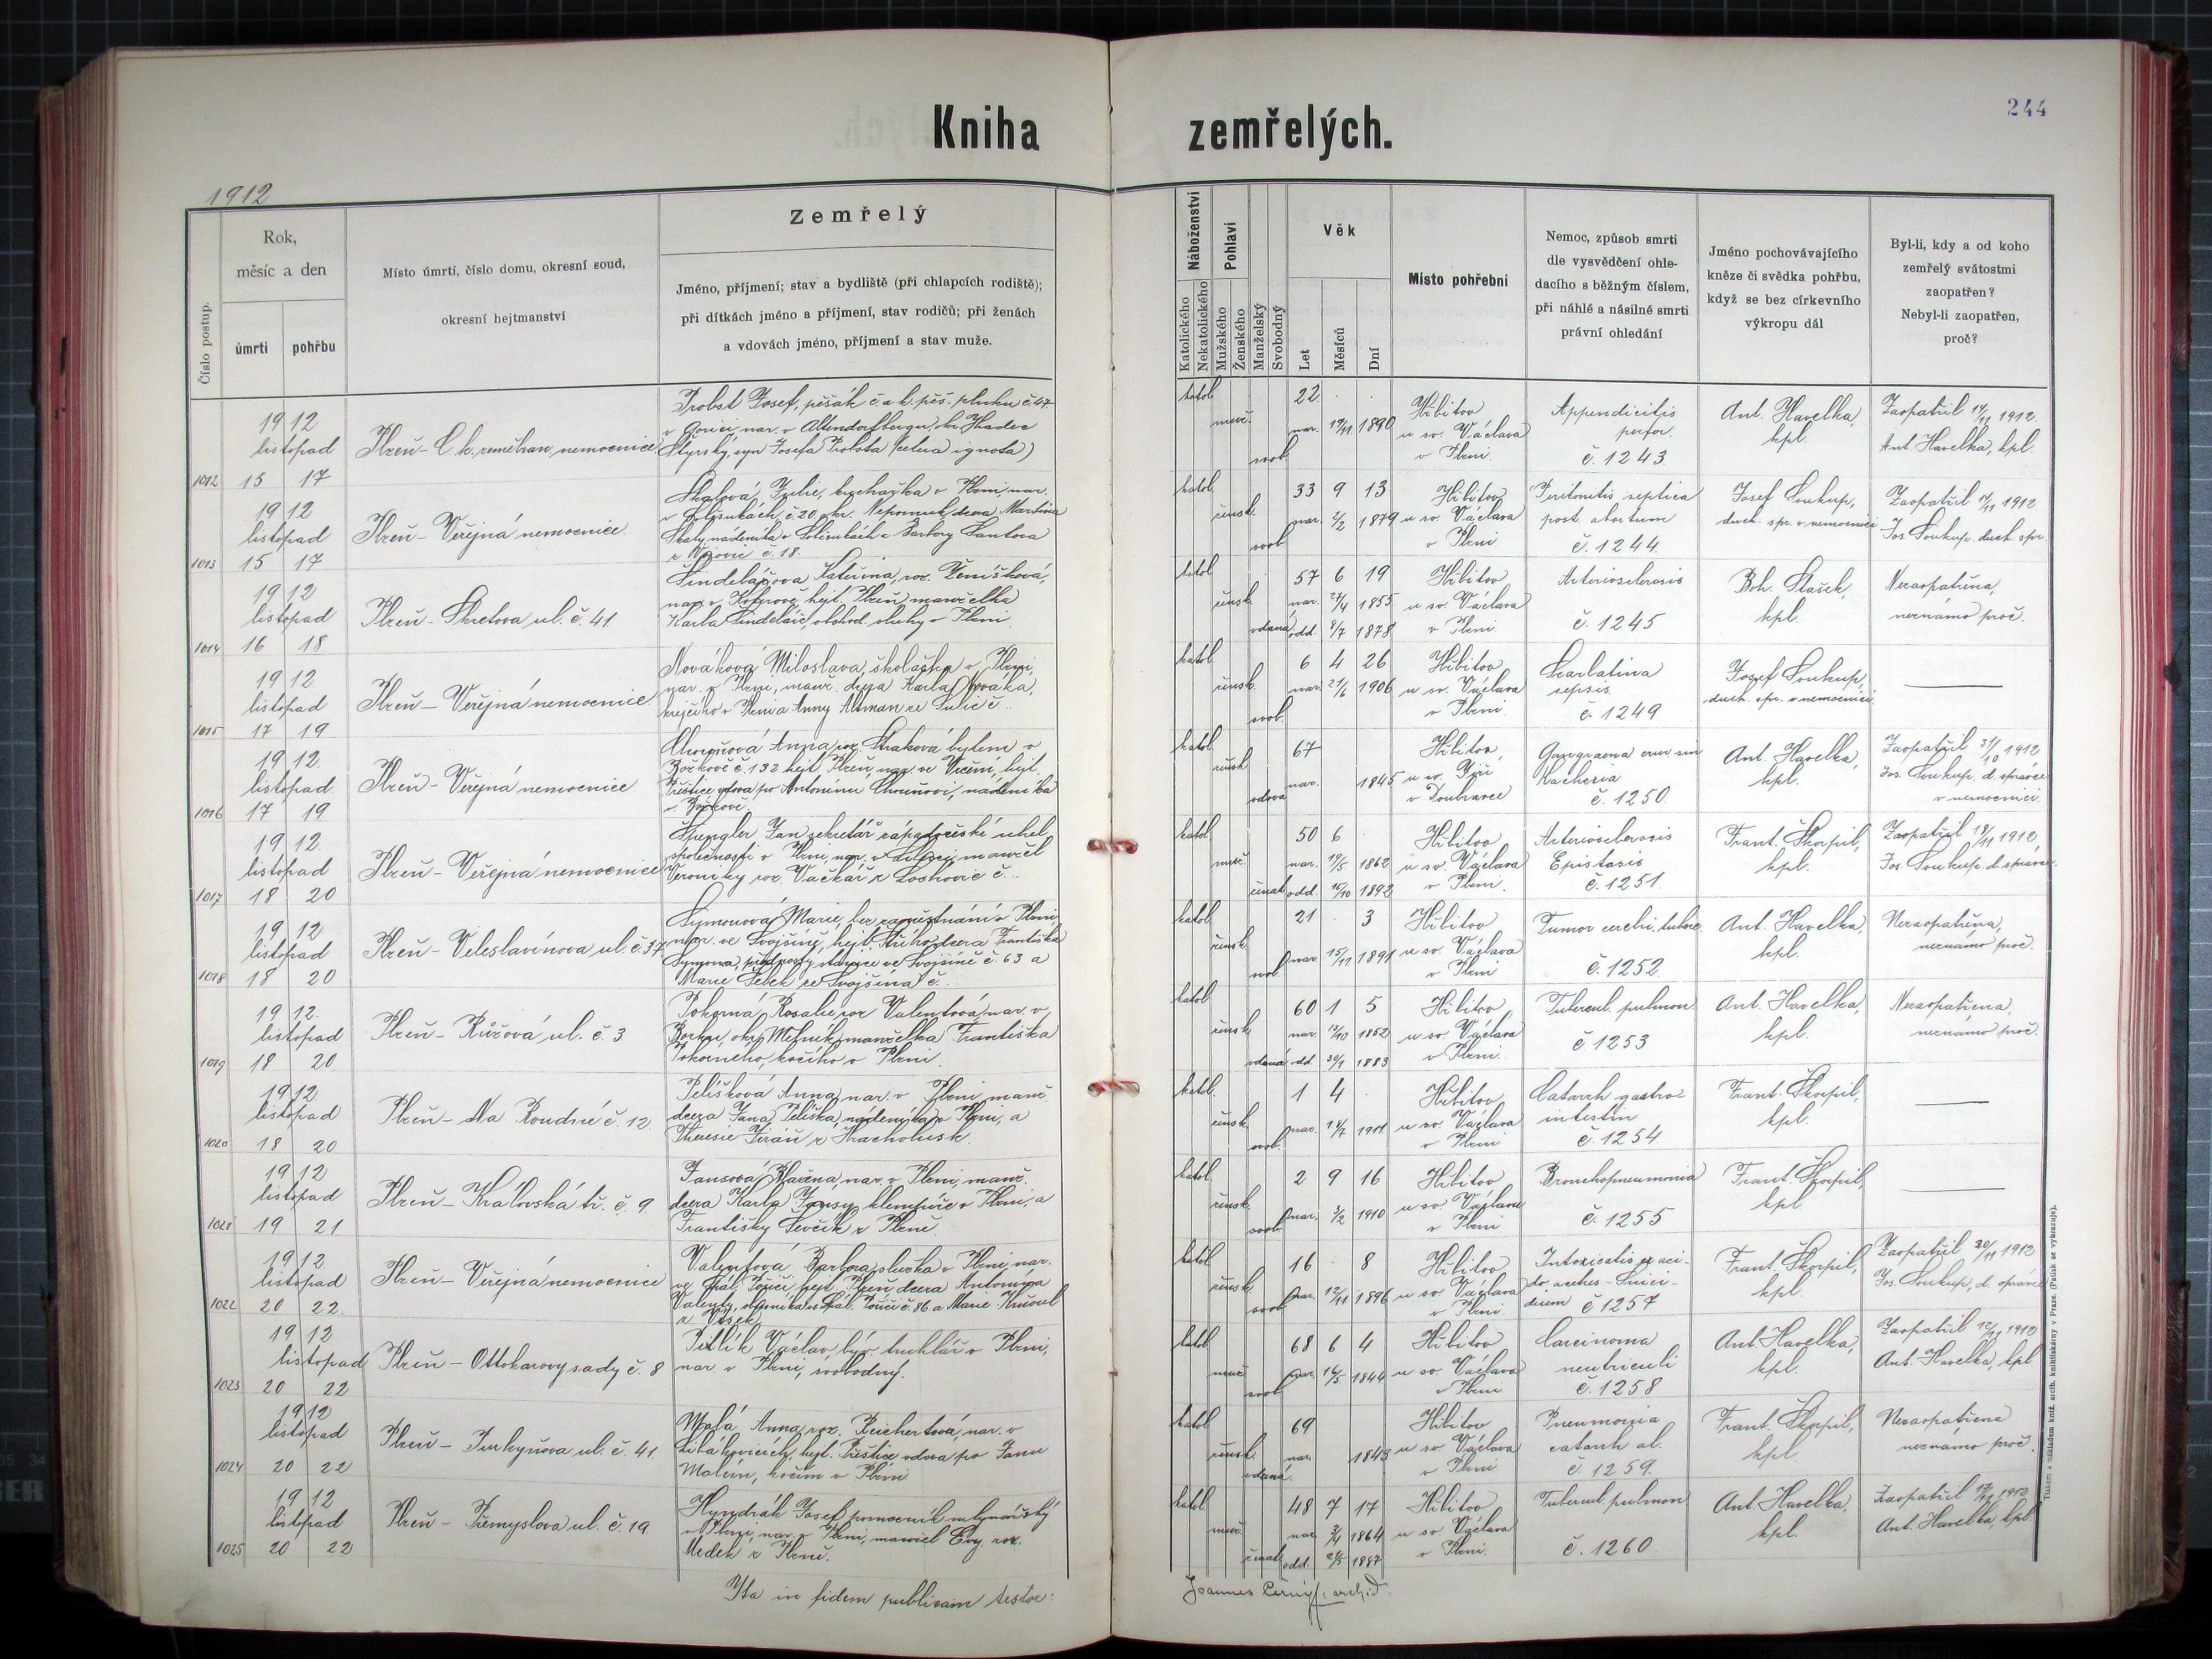 Kniha zemřelých.
244
1912
Číslo postup.
Rok,
měsíc a den
úmrtí
pohřbu
Místo úmrtí, číslo domu, okresní soud,
okresní hejtmanství
Zemřelý
Jméno, příjmení; stav a bydliště (při chlapcích rodiště);
při dítkách jméno a příjmení, stav rodičů; při ženách
a vdovách jméno, příjmení a stav muže.
Náboženství
Katolického
Nekatolického
Pohlaví
Mužského
Ženského
Manželský
Svobodný
Věk
Let
Měsíců
Dní
Místo pohřební
Nemoc, způsob smrti
dle vysvědčení ohle-
dacího s běžným číslem,
při náhlé a násilné smrti
právní ohledání
Jméno pochovávajícího
kněze či svědka pohřbu,
když se bez církevního
výkropu dál
Byl-li, kdy a od koho
zemřelý svátostmi
zaopatřen?
Nebyl-li zaopatřen,
proč?
1012
1912
listopad
15 17
Plzeň - C. k. zeměbran. nemocnice
Probst Josef, pěšák c. a k. pěš. pluku č. 47
v Gorici, nar. v Altendorfbergu, okr. Hradec
Štyrský, syn Josefa Probsta (cetera ignota)
katol.
muž.
svob.
22
nar. 1890
Hřbitov
u sv. Václava
v Plzni.
Appendicitis
perfor.
č. 1243.
Ant. Havelka,
kpl.
Zaopatřil 14/11 1912
Ant. Havelka, kpl.
1013
1912
listopad
15 17
Plzeň - Veřejná nemocnice
Skalová Julie, kuchařka v Plzni, nar.
č. 20 okr. Nepomuk, dcera Martina
Skaly, nádeníka a Barbory
č. 18.
katol.
žensk.
svob.
33 9 13
nar. 2/2 1879
Hřbitov
u sv. Václava
v Plzni
Peritonitis septica
post. abortum
č. 1244.
Josef Soukup,
duch. spr. v nemocnici
Zaopatřil 1912
Jos. Soukup. duch. spr.
1014
1912
listopad
16 18
Plzeň - Škretova ul. č. 41
Šindelářova Kateřina, roz. Ženíšková,
nar. v hejt. Plzeň, manželka
Karla Šindeláře, obchod. sluhy v Plzni.
katol.
žensk.
vdaná
57 6 19
nar. 27/4 1855
odd. 1878
Hřbitov
u sv. Václava
v Plzni
Arteriosclerosis
č. 1245
Boh. Stašek,
kpl.
Nezaopatřena,
neznámo proč.
1015
1912
listopad
17 19
Plzeň - Veřejná nemocnice
Nováková Miloslava, školačka v Plzni,
nar. v Plzni, manž. dcera Karla Nováka,
krejčího v Plzni a Anny Altman ze Sulic č...
katol.
žensk.
svob.
6 4 26
nar. 21/6 1906
Hřbitov
u sv. Václava
v Plzni
Scarlatina
sepsis
č. 1249
Josef Soukup,
duch. spr. v nemocnici
1016
1912
listopad
17 19
Plzeň - Veřejná nemocnice
Chounová Anna roz. Straková bytem v
Božkově č. 132 hejt. Plzeň, nar. ve Vrčeni, hejt.
Přeštice vdova po Antonínu Chounovi, nádeníka
v Božkově.
katol.
žensk.
vdova
67
nar. 1845
Hřbitov
u sv. Jiří
v Doubravce
Gangraena
Kachexia
č. 1250.
Ant. Havelka,
kpl.
Zaopatřil 31/10 1912
Jos. Soukup, d. správce
v nemocnici.
1017
1912
listopad
18 20
Plzeň - Veřejná nemocnice
Špengler Jan sekretář západočeské uhel.
společnosti v Plzni, nar. manžel
Veroniky roz. Vačkář z č...
katol.
muž.
ženat
50 6
nar. 19/5 1862
odd. 15/10 1892
Hřbitov
u sv. Václava
v Plzni.
Arteriosclerosis
Epistasis
č. 1251.
Frant. Škorpil,
kpl.
Zaopatřil 18/11 1912
Jos. Soukup, d. správce.
1018
1912
listopad
18 20
Plzeň - Veleslavínova ul. č. 37
Symonová Marie, bez zaměstnání v Plzni,
nar. ve Svojšíně, hejt. Stříbro dcera Františka
Symona, stanice ve Svojšíně č. 63 a
Marie Šebek ze Svojšína č...
katol.
žensk.
svob.
21 3
nar. 15/11 1891
Hřbitov
u sv. Václava
v Plzni
Tumor cerebri, tuberc.
č. 1252
Ant. Havelka,
kpl.
Nezaopatřena,
neznámo proč.
1019
1912
listopad
18 20
Plzeň - Růžová ul. č. 3
Pokorná Rosalie roz. Valentová, nar. v
okr. Mělník, manželka Františka
Pokorného, kočího v Plzni.
katol.
žensk.
vdaná
60 1 5
nar. 13/10 1852
odd. 1883
Hřbitov
u sv. Václava
v Plzni
Tubercul. pulmon.
č. 1253
Ant. Havelka,
kpl.
Nezaopatřena,
neznámo proč.
1020
1912
listopad
18 20
Plzeň - Na Roudné č. 12
Pelíšková Anna, nar. v Plzni, manž.
dcera Jana Pelíška, nádeníka v Plzni, a
Theresie z Hracholusk.
katol.
žensk.
svob.
1 4
nar. 1911
Hřbitov
u sv. Václava
v Plzni
Catarrh gastro
intestin
č. 1254
Frant. Škorpil,
kpl.
1021
1912
listopad
19 21
Plzeň - Královská tř. č. 9
Jansová Blažena, nar. v Plzni, manž.
dcera Karla Jansy, klempíře v Plzni, a
Františky Ševčík z Plzně.
katol.
žensk.
svob.
2 9 16
nar. 3/2 1910
Hřbitov
u sv. Václava
v Plzni
Bronchopneumonia
č. 1255
Frant. Škorpil,
kpl
1022
1912
listopad
20 22.
Plzeň - Veřejná nemocnice
Valentová Barbora, služka v Plzni, nar.
ve Spál. Poříčí, hejt. Plzeň dcera Antonína
Valenty, ve Spál. Poříčí č. 86 a Marie
z Vísek
katol.
žensk.
svob.
16 8
nar. 12/11 1896
Hřbitov
u sv. Václava
v Plzni.
Intoxicatis ex aci-
do - Suici-
dium č. 1257
Frant. Škorpil,
kpl.
Zaopatřil 20/11 1912
Jos. Soukup, d. správce
1023
1912
listopad
20 22
Plzeň - Ottokarovy sady č. 8
Pitlík Václav, býv. truhlář v Plzni,
nar. v Plzni, svobodný.
katol.
muž.
svob.
68 6 4
nar. 16/5 1844
Hřbitov
u sv. Václava
v Plzni
Carcinoma
ventriculi
č. 1258
Ant. Havelka,
kpl.
Zaopatřil 1912
Ant. Havelka, kpl
1024
1912
listopad
20 22
Plzeň - Purkyňova ul. č. 41
Malá Anna, roz. Reichertová, nar. v
Libákovicích, hejt. Přeštice vdova po Janu
Malém, kočím v Plzni
katol.
žensk.
vdaná.
69
nar. 1843
Hřbitov
u sv. Václava
v Plzni
Pneumonia
catarrh al.
č. 1259.
Frant. Škorpil,
kpl.
Nezaopatřena
neznámo proč.
1025
1912
listopad
20 22
Plzeň - Přemyslova ul. č. 19
Hyndrák Josef pomocník mlynářský
v Plzni, nar. v Plzni, manžel Evy roz.
Medek z Plzně.
katol.
muž.
ženat
48 7 17
nar. 3/4 1864
odd. 1887
Hřbitov
u sv. Václava
v Plzni.
Tubercul. pulmon
č. 1260.
Ant. Havelka,
kpl.
Zaopatřil 1912
Ant. Havelka, kpl
Ita in fidem publicam testor:
Joannes Černý, archid.
Tiskem a nákladem kníž. arcib. knihtiskárny v Praze. (Patisk se vyhrazuje).